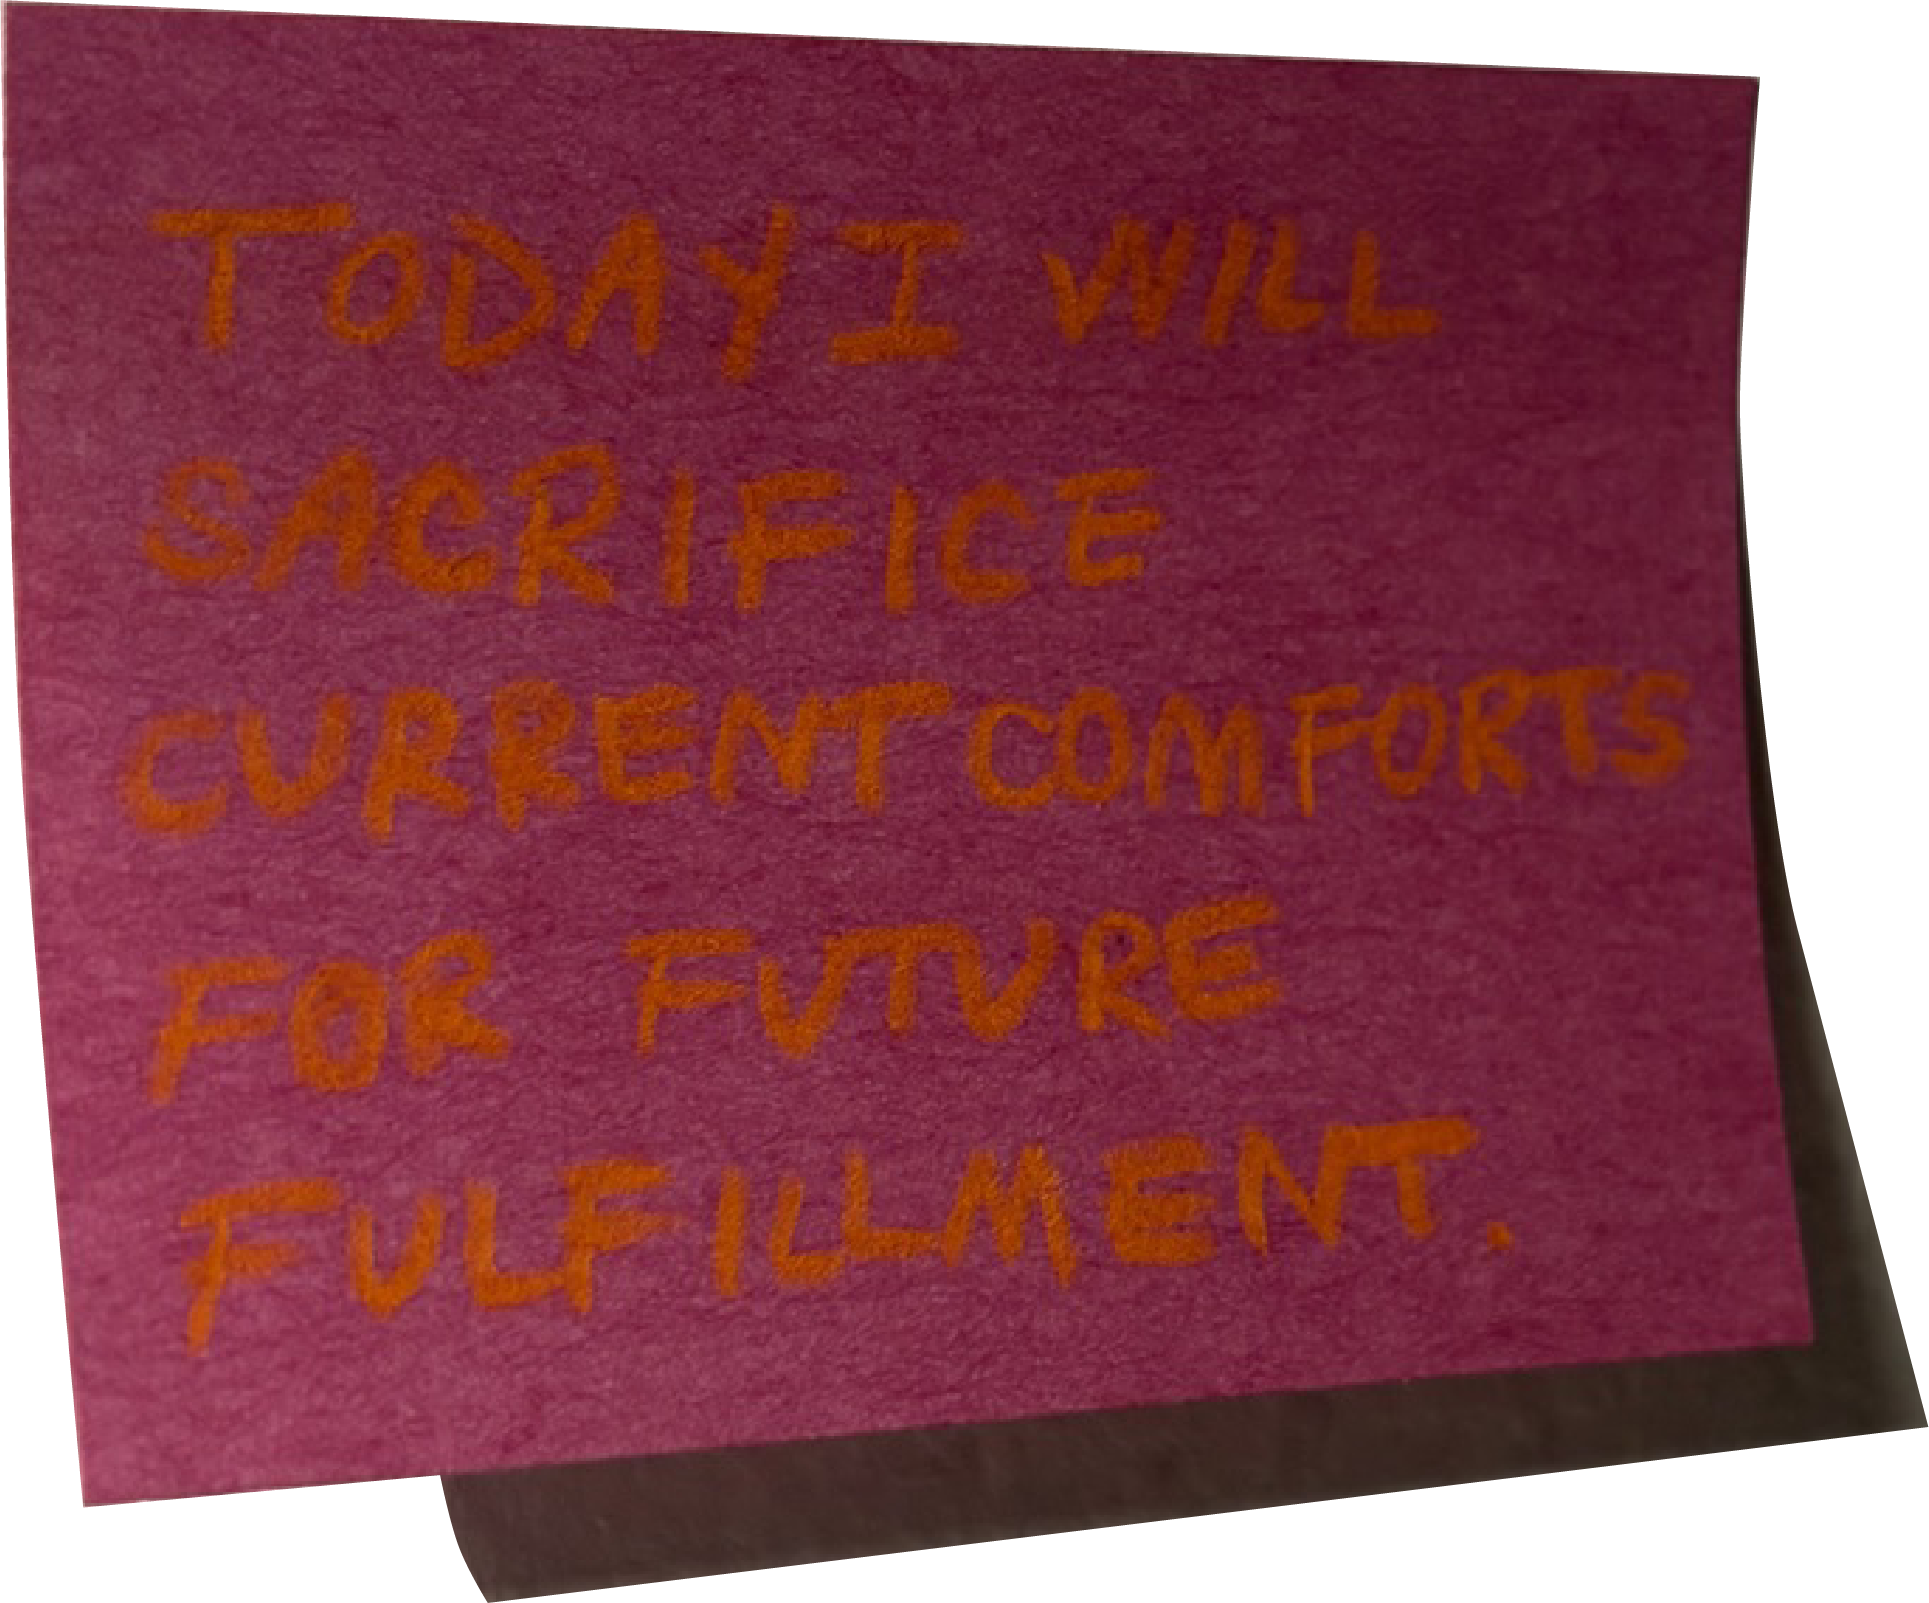 TODAY I WILL
SACRIFICE
CURRENT COMFORTS
FOR FUTURE
FULFILLMENT.